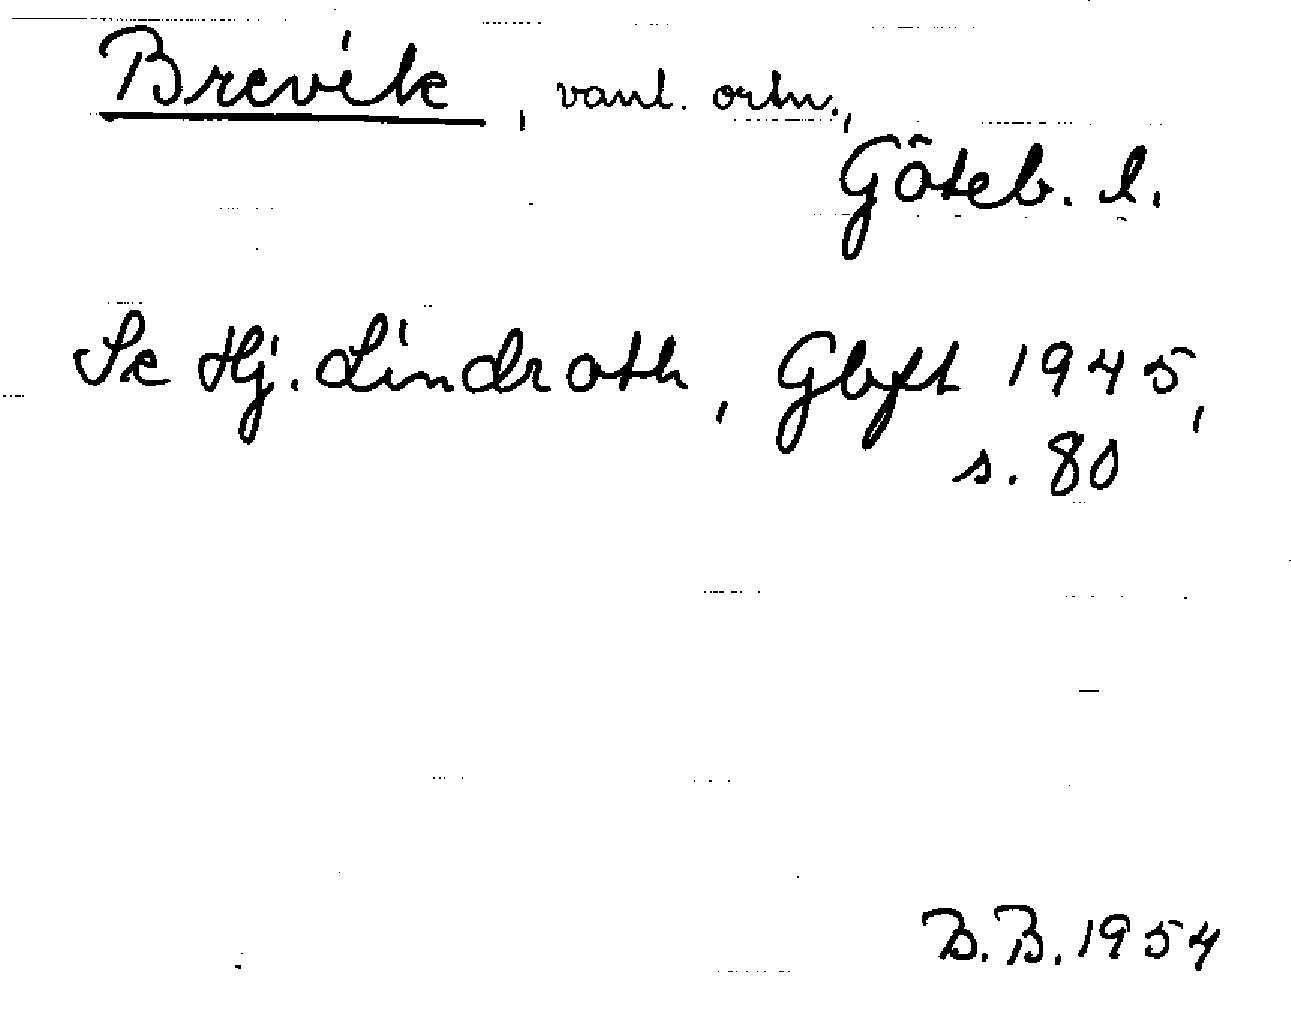 Brevik, vanl. ortn.,
Göteb. l.
Se Hj. Lindroth, Gbgft 1945,
s. 80
B.B. 1954